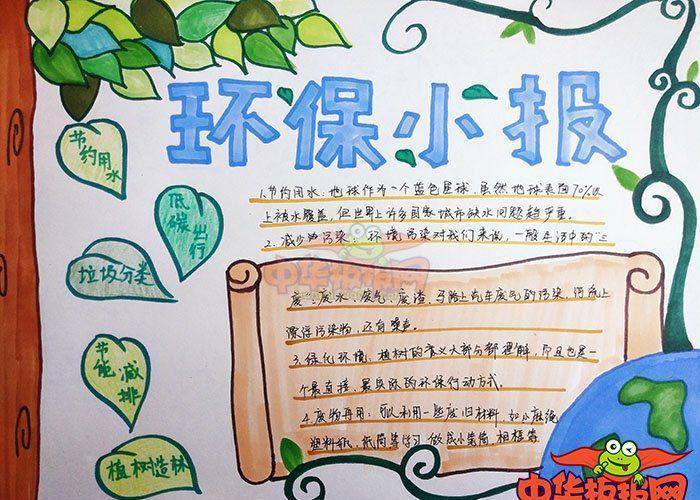 环保小报
节约用水
低碳出行
垃圾分类
节能减排
植树造林
1.节约用水:地球作为一个蓝色星球,虽然地球表面70%以
上被水覆盖,但世界上许多国家城市缺水问题趋严重。
2、减少污染:环境污染对我们来说,一般生活中的"三
废":废水、废气、废渣,马路上汽车废气的污染,河流上
漂浮污染物,还有噪声。
3.绿化环境:植树的意义大部分都理解,而且也是一
个最直接、最实际的环保行动方式。
4.废物再用:可以利用一些废旧材料,如小麻绳
塑料纸、纸筒等学习做成小笔筒、相框等
中华板报网
中华板报网